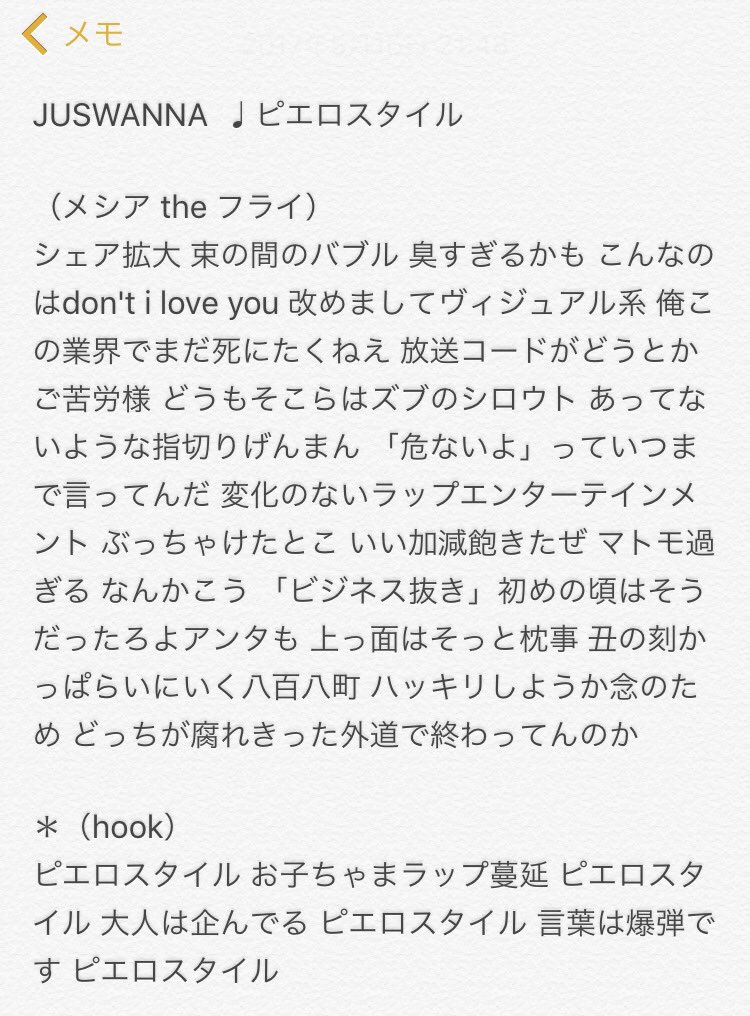 メモ
JUSWANNA ♩ピエロスタイル
（メシア the フライ）
シェア拡大 束の間のバブル 臭すぎるかも こんなの
はdon't i love you 改めましてヴィジュアル系 俺こ
の業界でまだ死にたくねえ 放送コードがどうとか
ご苦労様 どうもそこらはズブのシロウト あってな
いような指切りげんまん 「危ないよ」っていつま
で言ってんだ 変化のないラップエンターテインメ
ント ぶっちゃけたとこ いい加減飽きたぜ マトモ過
ぎる なんかこう 「ビジネス抜き」初めの頃はそう
だったろよアンタも 上っ面はそっと枕事 丑の刻か
っぱらいにいく八百八町 ハッキリしようか念のた
め どっちが腐れきった外道で終わってんのか
＊（hook）
ピエロスタイル お子ちゃまラップ蔓延 ピエロスタ
イル 大人は企んでる ピエロスタイル 言葉は爆弾で
す ピエロスタイル